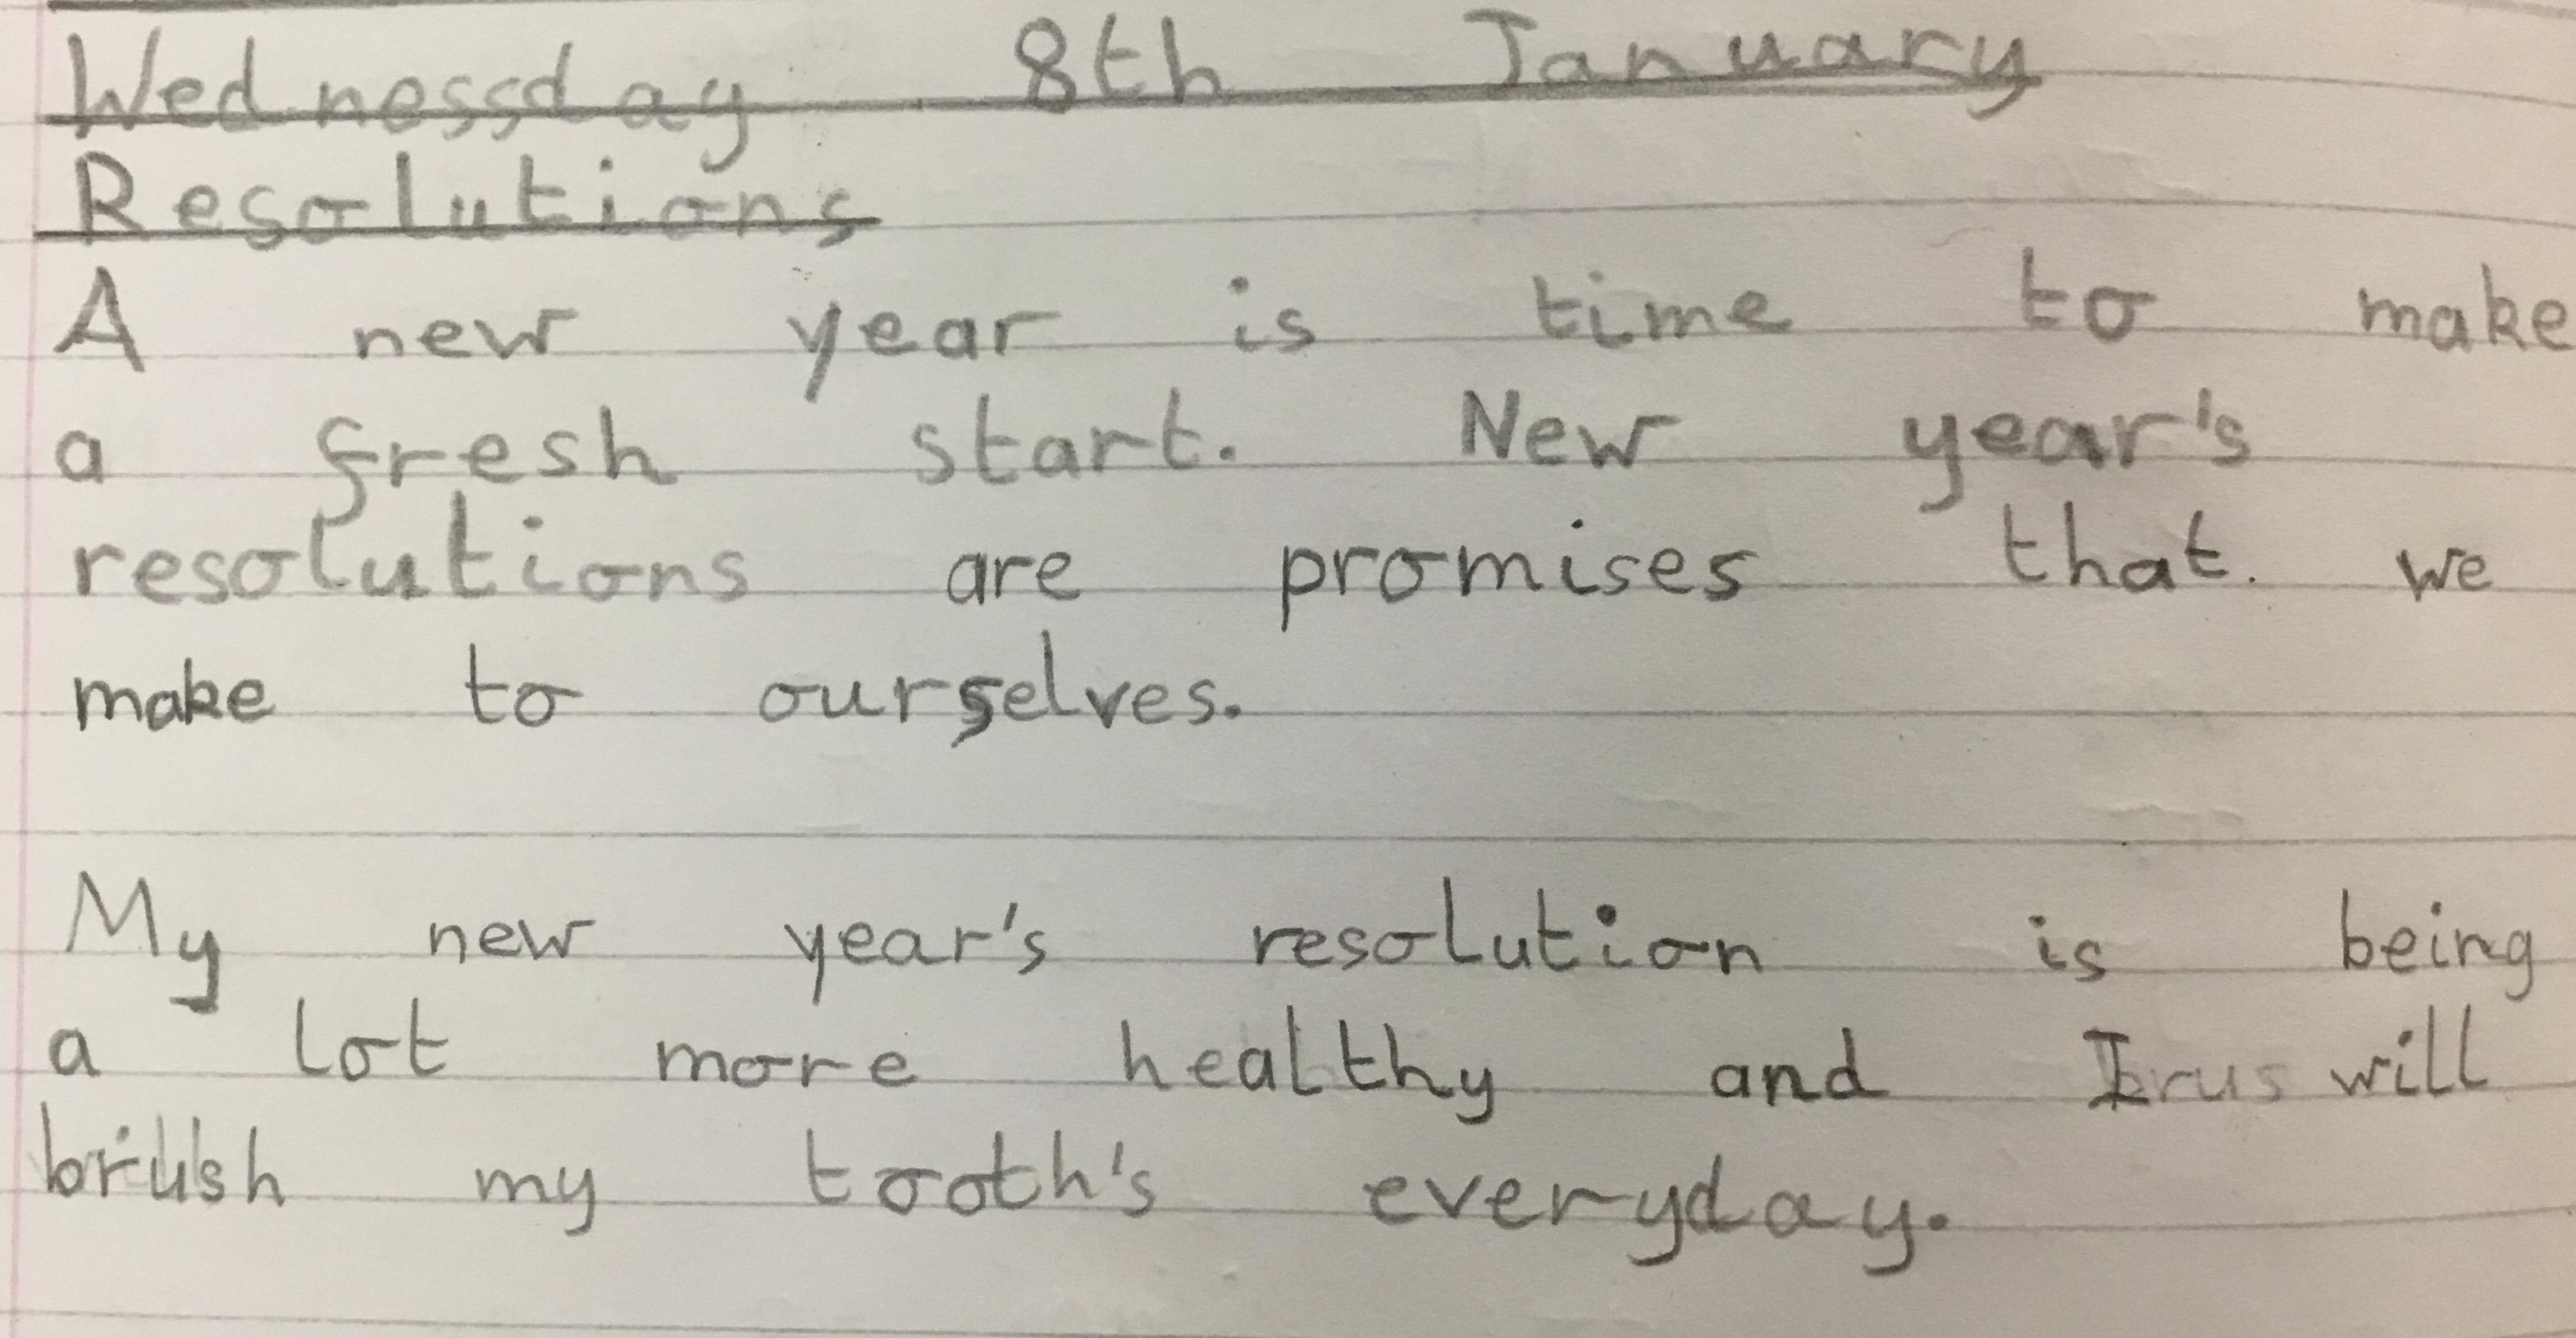 Wednessday 8th January
Resolutions
A new year is time to make
a fresh start. New year's
resolutions are promises that. we
make to ourselves.
My new year's resolution is being
a lot more healthy and I will
brush my tooth's everyday.